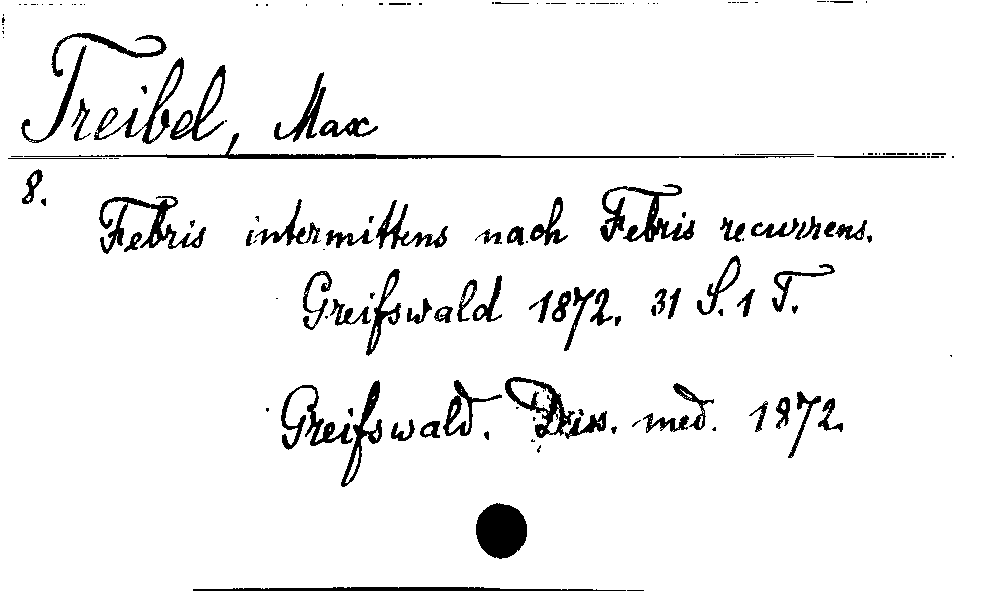 Treibel, Max
8.
Febris intermittens nach Febris recurrens.
Greifswald 1872. 31 S. 1 T.
Greifswald. Diss. med. 1872.